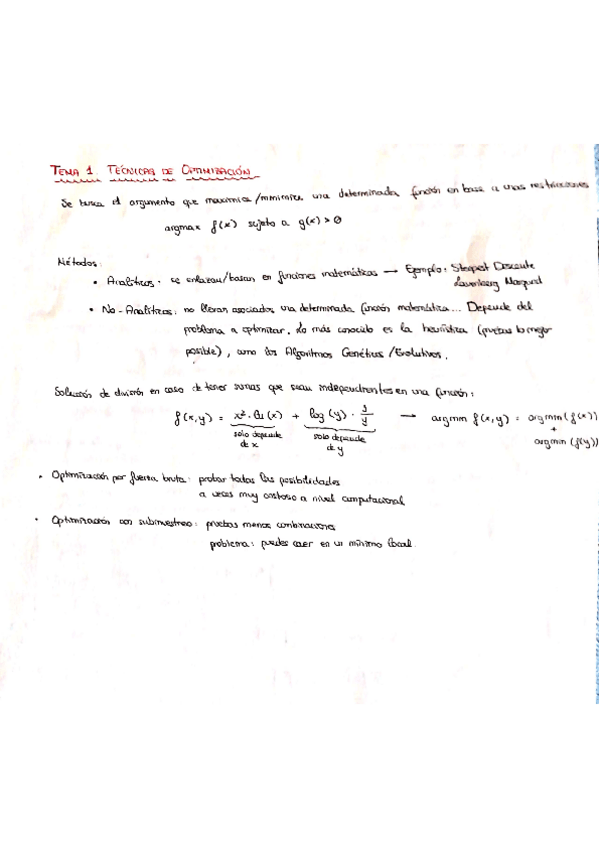 TEMA 1. TÉCNICAS DE OPTIMIZACIÓN
Se busca el argumento que maximiza/minimiza una determinada función en base a unas restricciones
argmax f(x) sujeto a g(x) > 0
Métodos:
• Analíticos: se enlazan/basan en funciones matemáticas → Ejemplo: Steepest Descente
Lavenberg Marquet
• No-Analíticos: no llevan asociados una determinada función matemática... Depende del
problema a optimizar. Lo más conocido es la heurística (pruebas lo mejor
posible), como los Algoritmos Genéticos/Evolutivos.
Solución de división en caso de tener sumas que sean independientes en una función:
f(x,y) = x². ln(x) + log(y) · 3/y → argmin f(x,y) = argmin(f(x))
solo depende solo depende +
de x de y argmin(f(y))
• Optimización por fuerza bruta: probar todas las posibilidades
a veces muy costoso a nivel computacional
• Optimización con submuestreo: pruebas menos combinaciones
problema: puedes caer en un mínimo local.